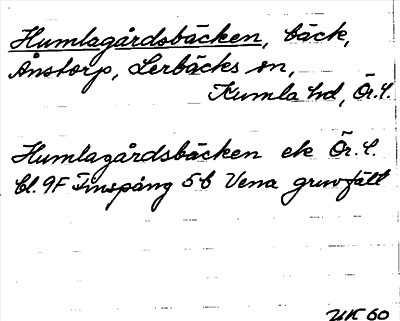 Humlagårdsbäcken, bäck,
Ånstorp, Lerbäcks sn,
Kumla hd, Ör. l.
Humlagårdsbäcken ek Ör. l.
bl. 9F Finspång 5b Vena gruvfält
UK 60